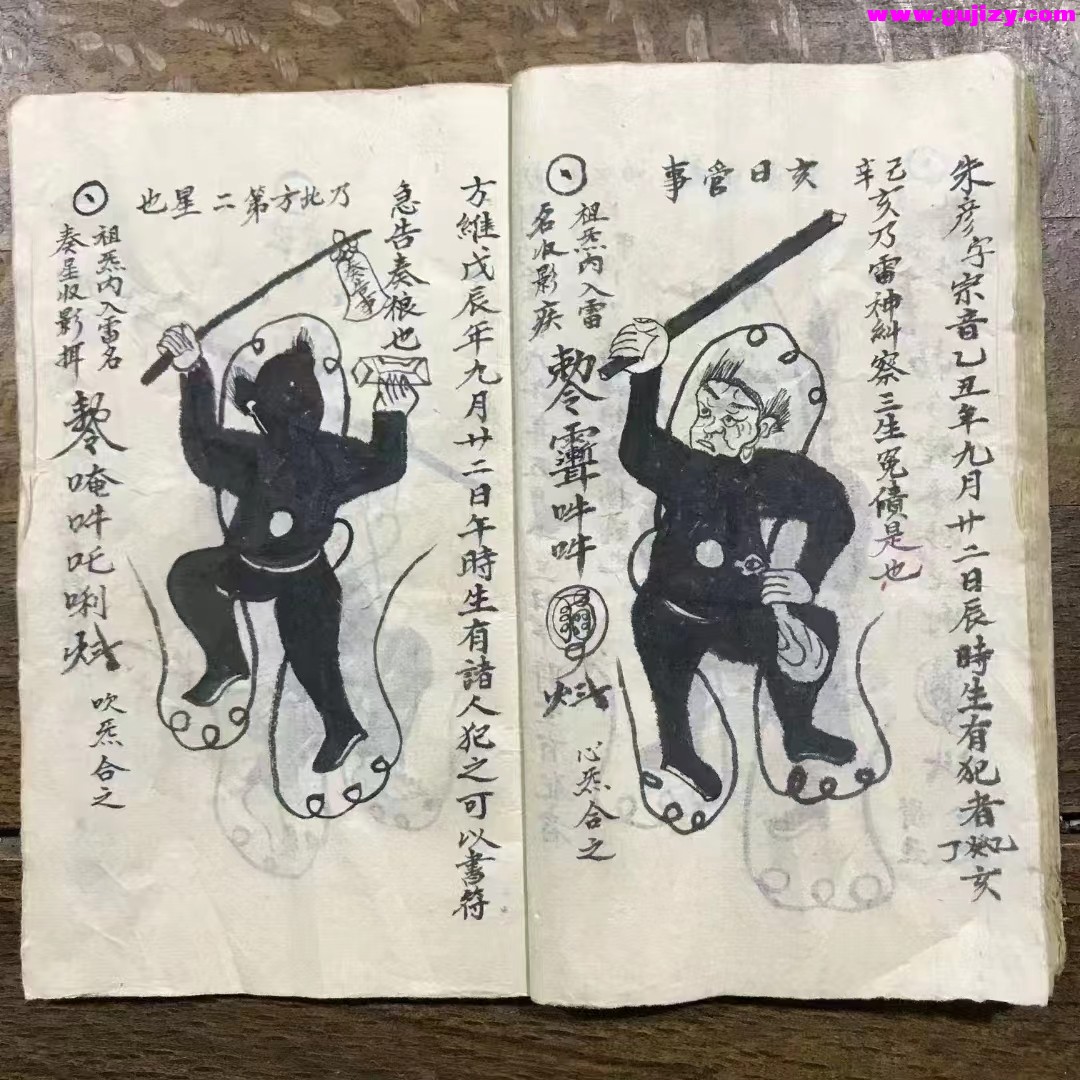 www.gujizy.com
朱彦字宗音乙丑年九月廿二日辰時生有犯者乙癸丁亥
己辛亥乃雷神糾察三生冤債是也
亥日管事
祖炁内入雷
名收影疾
勅令
吽吽
心炁合之
方維戊辰年九月廿二日午時生有諸人犯之可以書符
急告奏狼也
乃北方第二星也
祖炁内入雷名
奏星收影揖
唵吽吒唎
吹炁合之